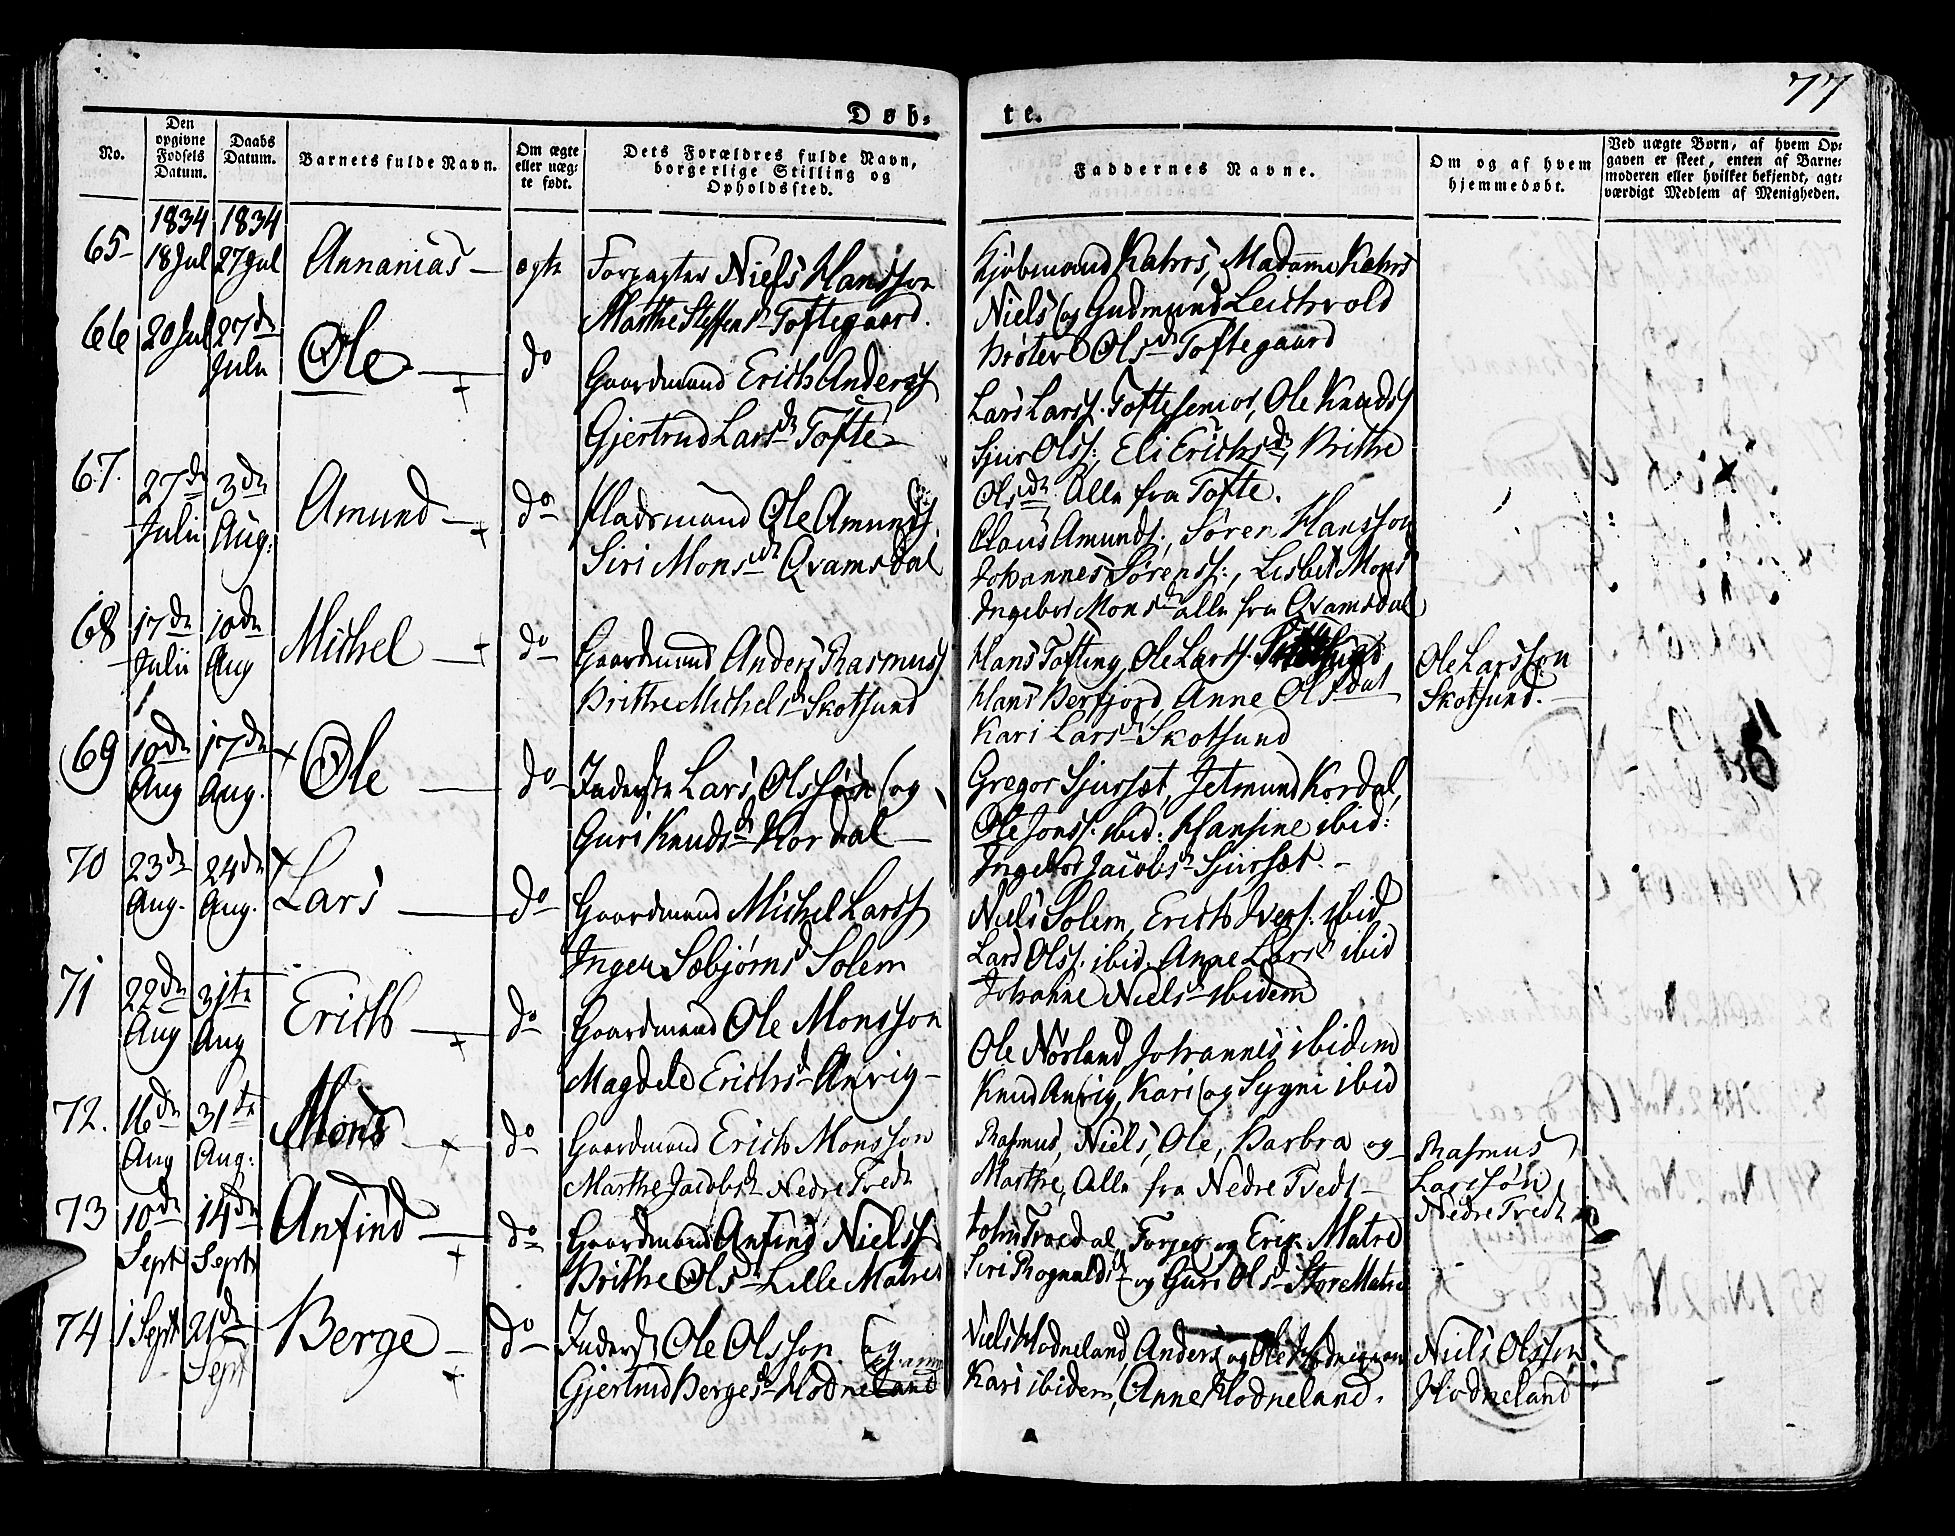 77
Døb-
te.
No.
Den opgivne Fødsels Datum.
Daabs Datum.
Barnets fulde Navn.
Om ægte eller uæg-te født.
Dets Forældres fulde Navn, borgerlige Stilling og Opholdssted.
Faddernes Navne.
Om og af hvem hjemmedøbt.
Ved uægte Børn, af hvem Op-gaven er skeet, enten af Barne-moderen eller hvilket bekjendt, agt-værdigt Medlem af Menigheden.
1834 1834
65 18 Jul 27 Jul Annanias ægte
Forpagter Niels Hansson
Marthe Steffensd Toftegaard.
Kjøbmand Kahrs, Madame Kahrs
Niels og Gudmund Leithvold
Olsd Toftegaard
66 20 Jul 27de Julii Ole do
Gaardmand Erich Anderss
Gjertrud Larsd Tofte
Lars Larss. Tofte senior, Ole Knudss
Sjur Olss:, Eli Erichsd, Brithe
Olsd. Alle fra Tofte.
67. 27de Julii 3de Aug: Amund do
Pladsmand Ole Amunds
Siri Monsd Qvamsdal
Claus Amunds., Søren Hansson
Johannes Sørenss:, Lisbet Mons
Ingebor Monsd alle fra Qvamsdal
68 17de Julii 10de Aug Michel do
Gaardmand Anders Rasmuss
Brithe Michelsd Skotsund
Hans Tofting, Ole Larss.
Hans Berfjord, Anne Olsdat
Kari Larsd Skotsund
Ole Larsson
Skotsund.
69 10de Aug 17de Aug. Ole do
Inderste Lars Olssøn og
Guri Knudsd Kordal
Gregor Sjursæt, Jetmund Kordal,
Ole Jonss. ibid: Hansine ibid:
Ingebor Jacobsd Sjursæt.
70 23de Aug. 24de Aug. Lars do
Gaardmand Michel Larss
Inger Sæbjørnsd Solem
Niels Solem, Erich Ivers. ibid
Lars Olss. ibid. Anne Larsd ibid
Johanne Nielsd ibidem
71 22de Aug 31te Aug Erich do
Gaardmand Ole Monsson
Magdele Erichsd Anvig
Ole Nørland Johannes ibidem
Knud Anvig, Kari og Sygni ibid
72. 16de Aug 31te Aug: Mons do
Gaardmand Erich Monsson
Marthe Jacobsd Nedre Tredt
Rasmus, Niels, Ole, Barbra og
Marthe, Alle fra Nedre Tvedt
Rasmus
Larssøn
Nedre Tvedt
73 10de Sept 14de Sept Anfind do
Gaardmand Anfind Nielss
Brithe Olsd Lille Matre
Torger og Eric Matre
Siri Rognaldsd og Guri Olsd Store Matre
74 1 Sept 21de Sept Berge do
Inderst Ole Olsson og
Gjertrud Bergesd Hodneland
Niels Hodneland, Anders og Ole
Kari ibidem, Anne Hodneland.
Niels Olsson
Hodneland